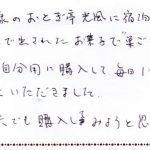 泉のおとぎ亭光風に宿泊
で出されたお菓子で「巣ご
自分用に購入して毎日い
いただきました。
でも購入し みようと思